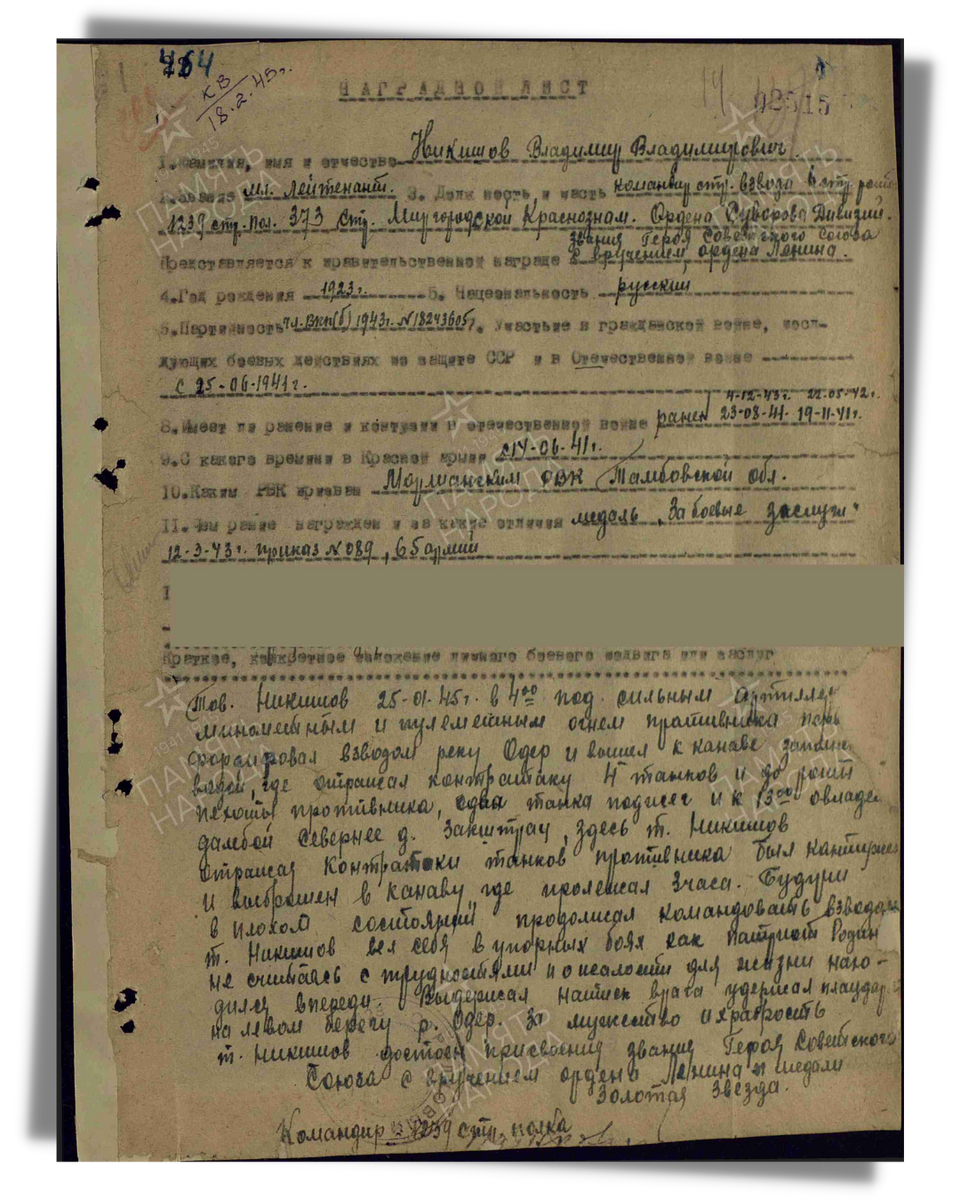 464
КВ
18.2.45г.
НАГРАДНОЙ ЛИСТ
19
02515
1.Фамилия, имя и отчество Никишов Владимир Владимирович.
2.Звание мл. лейтенант. 3. Должность и часть командир стр. взвода 4 стр. роты
1239 стр. пол. 373 Стр. Миргородской Краснознам. Ордена Суворова Дивизии.
звания Героя Советского Союза
Представляется к правительственной награде с вручением ордена Ленина.
4.Год рождения 1923 г. 5. Национальность русский
6.Партийность чл. ВКП(б) 1943г. №18243605 7. Участие в гражданской войне, после-
дующих боевых действиях по защите СССР и в Отечественной войне
с 25-06-1941г.
4-12-43г. 22-05-42г.
8.Имеет ли ранение и контузии в отечественной войне ранен 23-08-41. 19-11-41г.
9.С какого времени в Красной армии с 14-06-41г.
10.Каким РВК призван Моршанским РВК Тамбовской обл.
11.Чем ранее награжден и за какие отличия медаль „За боевые заслуги"
12-3-43г. приказ №089, 65 армии
Краткое, конкретное изложение личного боевого подвига или заслуг
Тов. Никишов 25-01-45г. в 4⁰⁰ под сильным артиллер
минометным и пулеметным огнем противника
форсировал взводом реку Одер и вышел к канаве
водой, где отражал контратаку 4 танков и до роты
пехоты противника, два танка поджег и к 13⁰⁰ овладе
дамбой севернее д. Закштрау, здесь т. Никишов
отражая контратаки танков противника был контужен
и выброшен в канаву, где пролежал 3 часа. Будучи
в плохом состоянии, продолжал командовать взводом
т. Никишов вел себя в упорных боях как патриот Родин
не считаясь с трудностями и опасности для жизни нахо-
дился впереди. Выдержал натиск врага удержал плацдар
на левом берегу р. Одер. За мужество и храбрость
т. Никишов достоен присвоения звания Героя Советского
Союза с вручением ордена Ленина и медали
Золотая Звезда.
Командир 1239 стр. полка
ПАМЯТЬ НАРОДА
1941 1945